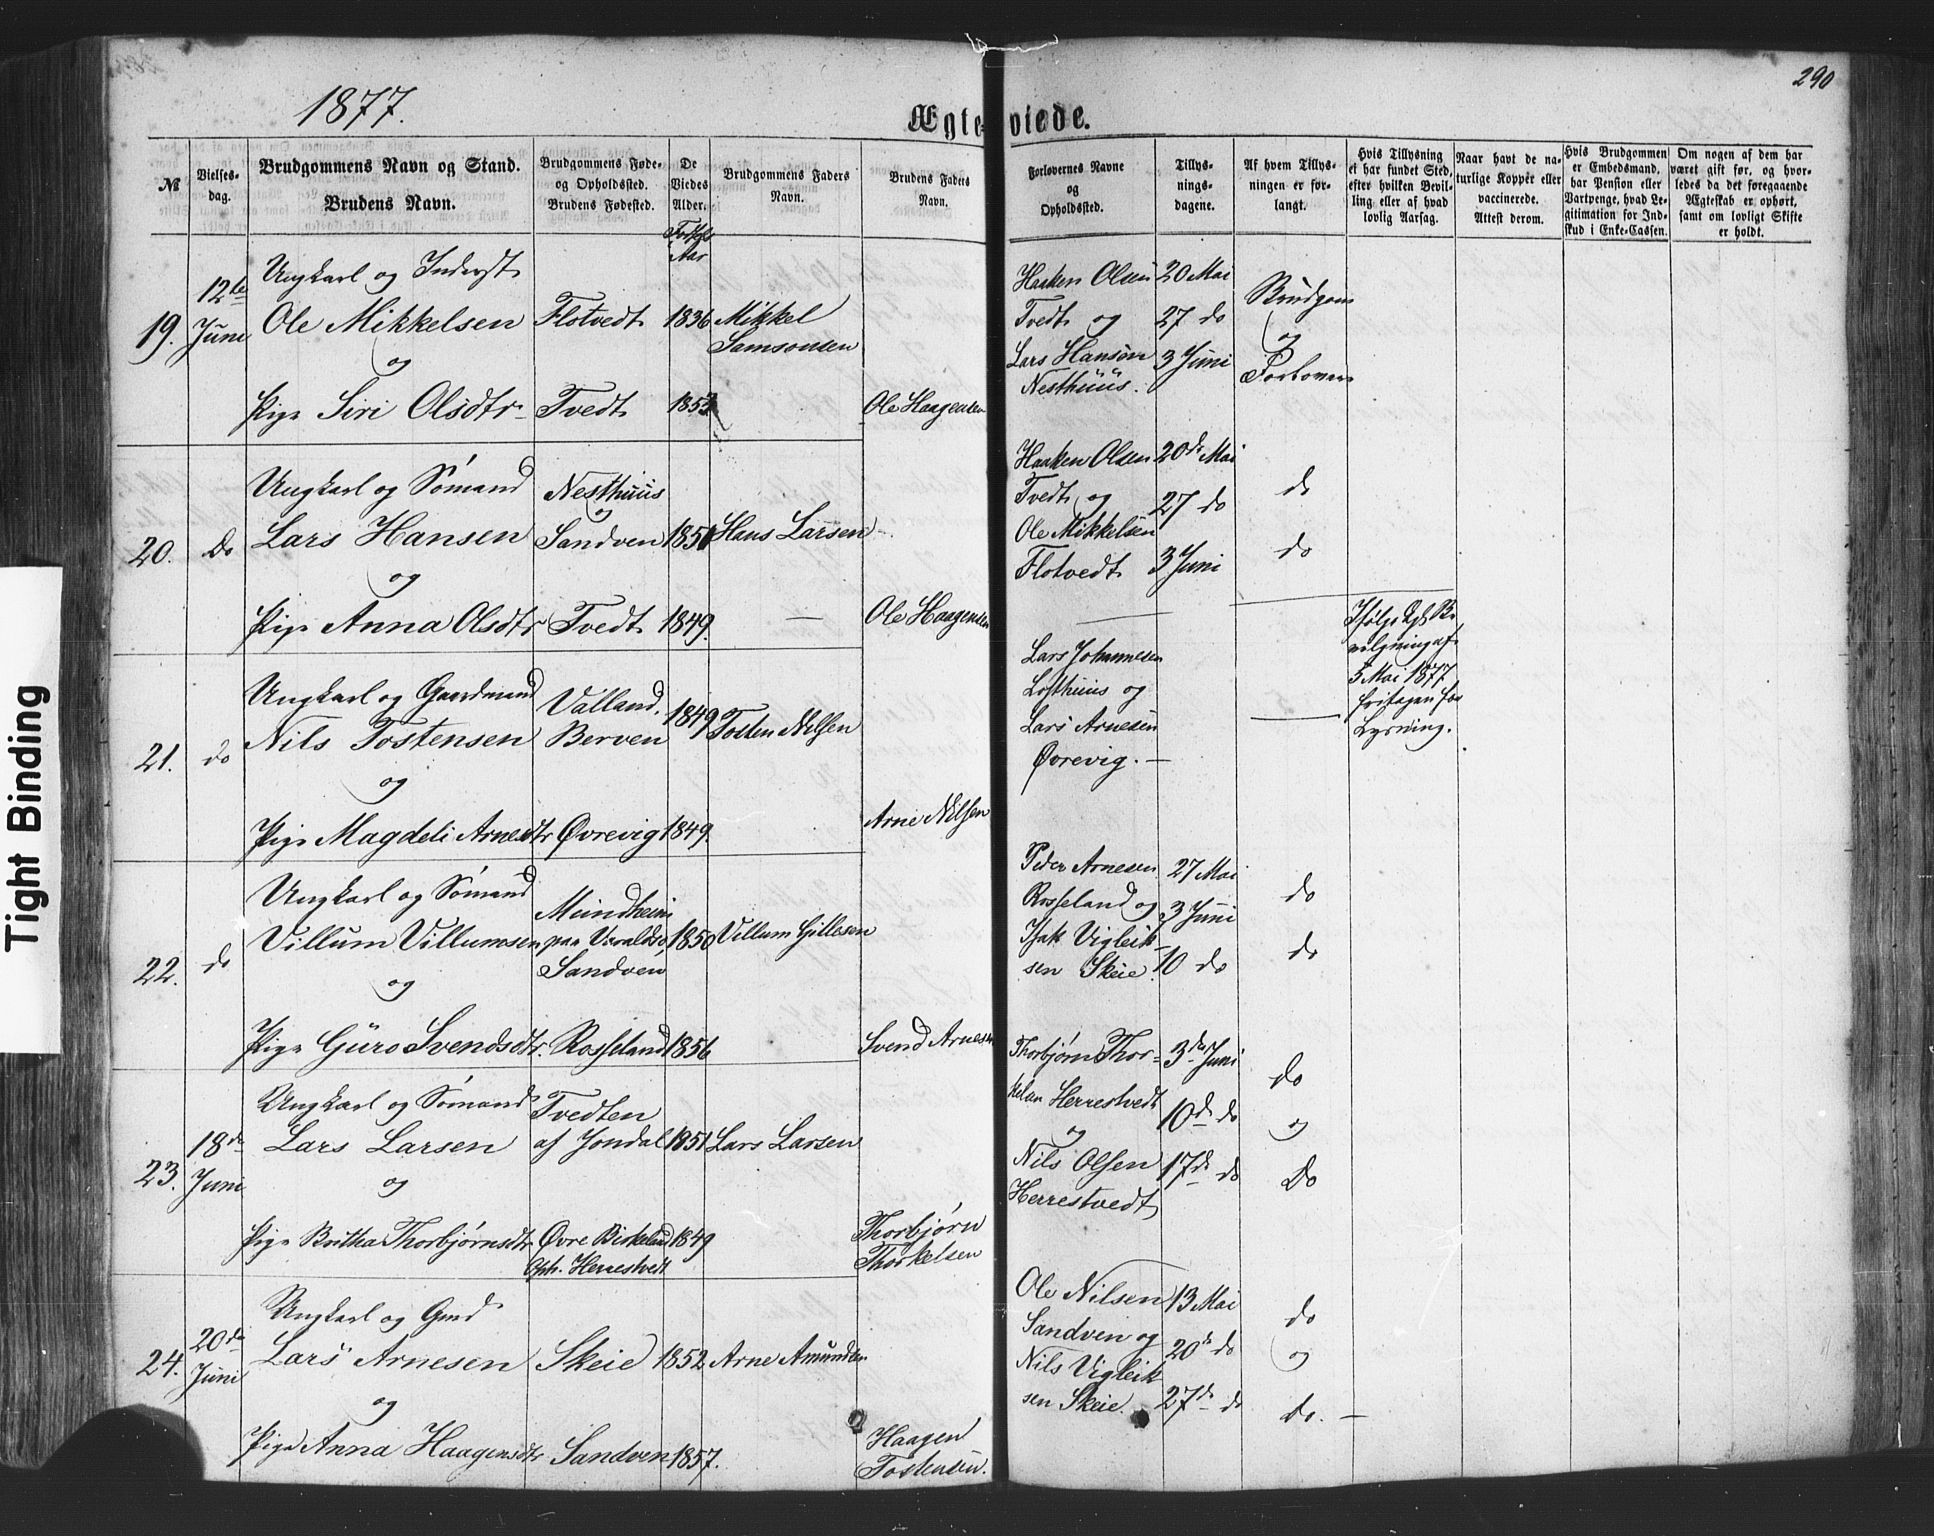 290
1877.
Ægtevie de.
№
Vielses-
dag.
Brudgommens Navn og Stand.
Brudens Navn.
Brudgommens Føde-
og Opholdssted.
Brudens Fødested.
De
Viedes
Alder.
Fødsels
Aar
Brudgommens Faders
Navn.
Brudens Faders
Navn.
Forlovernes Navne
og
Opholdssted.
Tillys-
nings-
dagene.
Af hvem Tillys-
ningen er for-
langt.
Hvis Tillysning
ei har fundet Sted,
efter hvilken Bevil-
ling eller af hvad
lovlig Aarsag.
Naar havt de na-
turlige Kopper eller
vaccinerede.
Attest derom.
Hvis Brudgommen
er Embedsmand,
har Pension eller
Vartpenge, hvad Le-
gitimation for Ind-
skud i Enke-Cassen.
Om nogen af dem har
været gift før, og hvor-
ledes da det foregaaende
Ægteskab er ophørt,
samt om lovligt Skifte
er holdt.
19.
12te
Juni
Ungkarl og Inderst
Ole Mikkelsen
og
Pige Siri Olsdtr
Flotvedt
Tvedt
1836
1853
Mikkel
Samsonsen
Ole Haagensen
Haaken Olsen
Tvedt og
Lars Hansen
Nesthuus.
20 Mai
27 do
3 Juni
Brudgom
og
Forlovere
20.
do
Ungkarl og Sømand
Lars Hansen
og
Pige Anna Olsdtr
Nesthuus
og
Sandven
Tvedt
1851
1849.
Hans Larsen
—
Ole Haagensen
Haaken Olsen
Tvedt og
Ole Mikkelsen
Flotvedt
20de Mai
27 do
3 Juni
do
do
21.
do
Ungkarl og Gaardmand
Nils Tostensen
og
Pige Magdeli Arnesdtr
Valland.
Berven
Øvrevig
1849
1849.
Tosten Nilsen
Arne Nilsen
Lars Johannesen
Lofthuus og
Lars Arnesen
Øvrevig. —
Ifølge Kgl. Be-
vilgning af
5 Mai 1877
fritagen for
Lysning.
22.
do
Ungkarl og Sømand
Villum Villumsen
og
Pige Guro Svendsdtr.
Mundheim
paa Varaldsø,
Sandven
Rosseland
1850
1856
Villum Gillesen
Svend Arnesen
Peder Arnesen
Rosseland og
Isak Vigleik-
sen Skeie.
27 Mai
3 Juni
10 do
do
do
23.
18de
Juni
Ungkarl og Sømand
Lars Larsen
og
Pige Britha Thorbjørnsdtr
Tvedten
af Jondal
Øvre Birkeland
Oph. Herrestvedt
1851
1849
Lars Larsen
Thorbjørn
Thorkelsen
Thorbjørn Thor-
kelsen Herrestvedt
og
Nils Olsen
Herrestvedt
3de Juni
10de do
17de do
do
og
Do
24.
20de
Juni
Ungkarl og Gmd
Lars Arnesen
og
Pige Anna Haagensdtr
Skeie
Sandven
1852
1857.
Arne Amundsen
Haagen
Tostensen.
Ole Nilsen
Sandven og
Nils Vigleik
sen Skeie.
13 Mai
20de do
27de do
do
og
do. —
Tight Binding